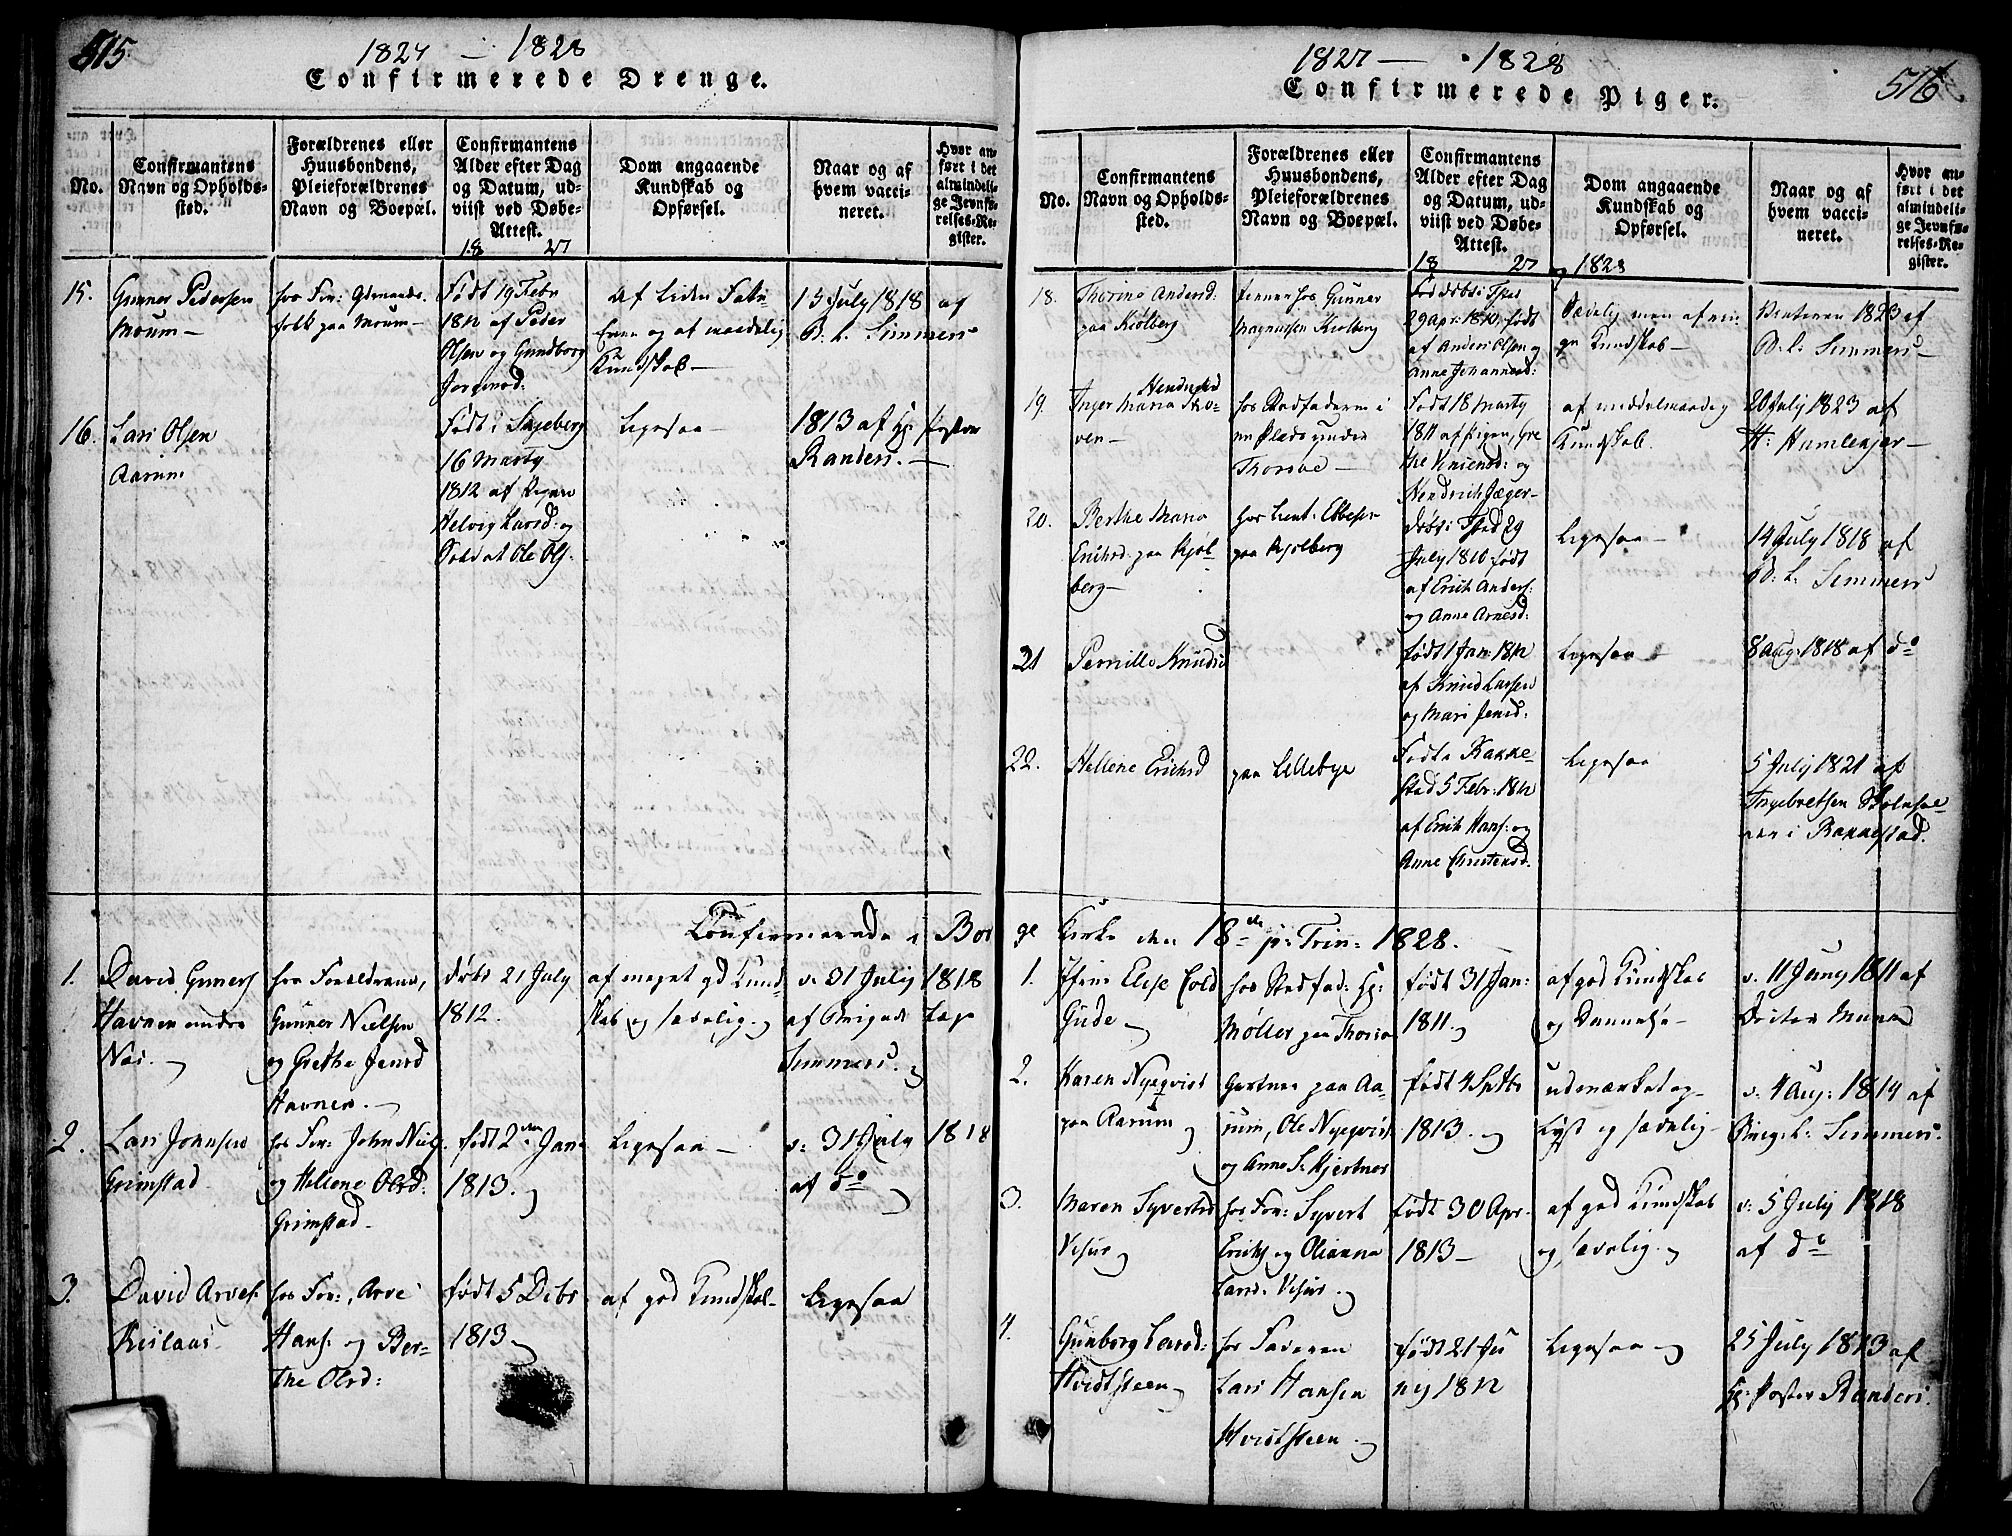 515.
1827 — 1828
Confirmerede Drenge.
No.
Confirmantens
Navn og Opholds-
sted.
Forældrenes eller
Huusbondens,
Pleieforældrenes
Navn og Boepæl.
Confirmantens
Alder efter Dag
og Datum, ud-
viist ved Døbe-
Attest.
Dom angaaende
Kundskab og
Opførsel.
Naar og af
hvem vacci-
neret.
Hvor an-
ført i det
almindeli-
ge Jevnfø-
relses-Re-
gister.
18 27
15.
Gunner Pedersen
Moum—
hos For:
folk paa Moum—
Født 19 Febr
1812 af Peder
Olsen og Gundborg
Af liden
Evne og af maadelig
Kundskab—
15 July 1818 af
B: L. Simmers
16.
Lars Olsen
Aarum
Født i Skjeberg
16 Marty
1812 af Pigen
Helvig Larsd: og
Soldat Ole Ols:
Ligesaa—
1813 af Hr Pastor
Randers.—
Confirmerede i Bor
1.
David Guners
Havnen
hos Forældrene,
Gunner Nielsen
og Grethe Jensd
Havnen.—
døbt 21 July
1812.
af meget god Kund-
skab og sædelig
v. 31 July 1818
af Brigade Læge
Simmers.
2.
Lars Johnsen
Grimstad
hos For: John Niels
og Hellene Olsd:
Grimstad—
født 2den Jan
1813.
Ligesaa—
v: 31 July 1818
af do
3.
David Arves.
hos For:, Arve
Hans: og Ber-
the Olsd:
født 5 Debr
1813
af god Kundskab—
Ligesaa
1827 — 1828
Confirmerede Piger.
516
No.
Confirmantens
Navn og Opholds-
sted.
Forældrenes eller
Huusbondens,
Pleieforældrenes
Navn og Boepæl.
Confirmantens
Alder efter Dag
og Datum, ud-
viist ved Døbe-
Attest.
Dom angaaende
Kundskab og
Opførsel.
Naar og af
hvem vacci-
neret.
Hvor an-
ført i det
almindeli-
ge Jevnfø-
relses-Re-
gister.
18 27 og 1828
18.
Thorine Andersd:
paa Kiølberg
tjener hos Gunner
Magnussen Kiølberg
29 Apr: 1810, født
af Anders Olsen og
Anne Johannesd:
Sædelig men af rin-
ge Kundskab—
1823 af
B: L: Simmers—
19.
Inger Maria Hendrichsd
hos Stedfaderen i
en Plads under
Thorsøe—
født 18 Marty
1811 af Pigen, Gre
the og
Hendrich Jæger—
af middelmaadig
Kundskab.
20 July 1823 af
H: Humlekjær—
20.
Berthe Maria
Erichsd. paa Kjøl-
berg—
hos Lieut: Ebbesen
paa Kjølberg
døbt i 29
July 1810 født
af Erich Anders:
og Anne Arnesd:
Ligesaa—
14 July 1818 af
B: L. Simmers
21
Pernille Knudsd
født 1 Jan: 1812
af Knud Larsen
og Mari Jensd:
Ligesaa
8 Aug: 1818 af do
22.
Hellene Erichsd
paa Lillebye
Født i Rakke-
stad 5 Febr: 1812
af Erich Hans: og
Anne Christensd.
Ligesaa
5 July 1821 af
Ingebretsen Skolehol-
der i Rakkestad.
ge Kirke den 18de p: Trin: 1828.
1.
Elise Cold
Gude
hos Stedfad: Hr:
Møller paa Thorsø
født 31 Jan:
1811.
af god Kundskab
og Dannelse—
v. 11 Juny 1811 af
Doctor Munk
2.
Karen Nyeqvist
paa Aarum
Gartner paa Aa-
rum, Ole Nyeqvist
og Anne S: Hjertnes
født 4 Sptbr
1813.
udmærket op-
lyst og sædelig—
v. 4 Aug: 1814 af
Brig: L. Simmers.
3.
Maren Syvertsd
Visur
hos For: Syvert
Erichs og Olianna
Larsd: Visur
født 30 Apr.
1813—
af god Kundskab
og sædelig.
v: 5 July 1818
af do
4.
Gunborg Larsd:
Hvidsteen
hos Faderen
Lars Hansen
Hvidsteen
født 21 Ju
ny 1812
Ligesaa
25 July 1813 af
Hr: Pastor Randers.